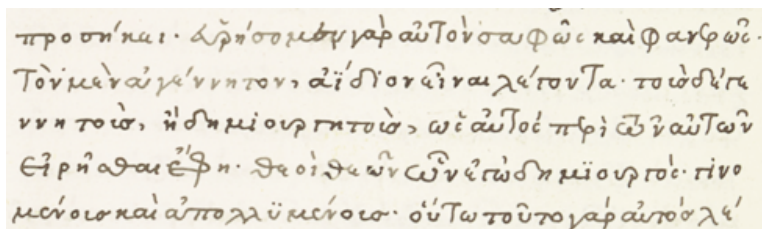 προσήκει· εὑρήσομεν γὰρ αὐτὸν σαφῶς καὶ φανερῶς·
τὸν μὲν ἀγέννητον, ἀΐδιον εἶναι λέγοντα· τοῖς δὲ γε
ννητοῖς, ἢ δημιουργητοῖς, ὡς αὐτὸς περὶ ὧν αὐτῶν
εἰρῆσθαι ἔφη· θεοὶ θεῶν ὧν ἐγὼ δημϊουργὸς· γινο
μένοις καὶ ἀπολλϋμένοις· οὕτω τοῦτο γὰρ αὐτὸς λέ